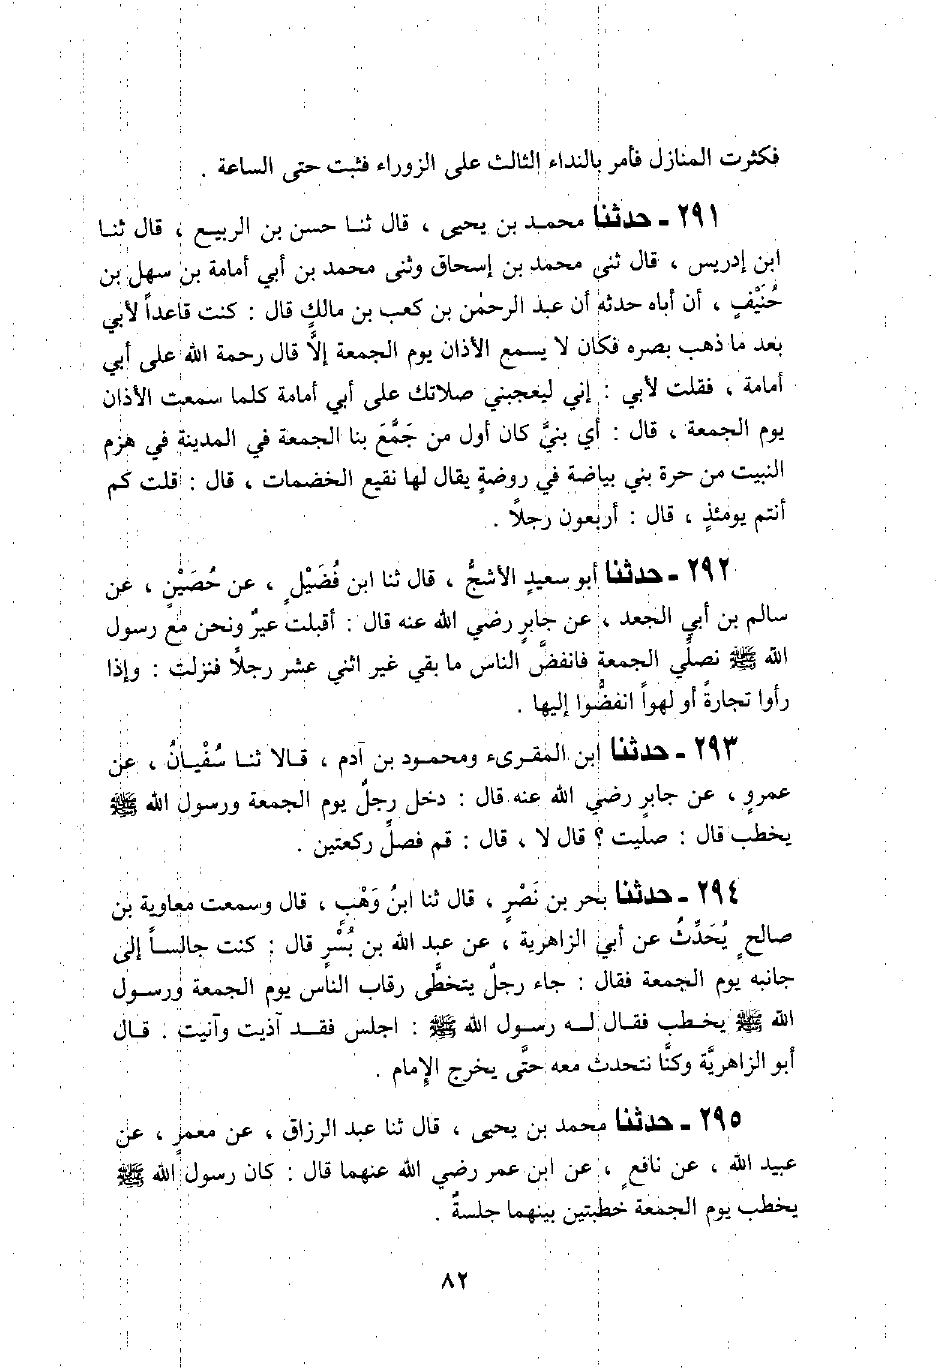 فكثرت المنازل فأمر بالنداء الثالث على الزوراء فثبت حتى الساعة .
٢٩١ - حدثنا محمد بن يحيى ، قال ثنا حسن بن الربيع ، قال ثنا
ابن إدريس ، قال ثني محمد بن إسحاق وثنى محمد بن أبي أمامة بن سهل بن
حُنَيْفٍ ، أن أباه حدثه أن عبد الرحمٰن بن كعب بن مالكٍ قال : كنت قاعداً لأبي
بعد ما ذهب بصره فكان لا يسمع الأذان يوم الجمعة إلَّا قال رحمة الله على أبي
أمامة ، فقلت لأبي : إني ليعجبني صلاتك على أبي أمامة كلما سمعت الأذان
يوم الجمعة ، قال : أي بنيَّ كان أول من جَمَّعَ بنا الجمعة في المدينة في هزم
النبيت من حرة بني بياضة في روضةٍ يقال لها نقيع الخضمات ، قال : قلت كم
أنتم يومئذٍ ، قال : أربعون رجلاً .
٢٩٢ - حدثنا أبو سعيدٍ الأشجُّ ، قال ثنا ابن فُضَيْلٍ ، عن حُصَيْنٍ ، عن
سالم بن أبي الجعد ، عن جابرٍ رضي الله عنه قال : أقبلت عيرٌ ونحن مع رسول
الله ﷺ نصلِّي الجمعة فانفضَّ الناس ما بقي غير اثني عشر رجلاً فنزلت : وإذا
رأوا تجارةً أو لهواً انفضُّوا إليها .
٢٩٣ - حدثنا ابن المقرىء ومحمود بن آدم ، قالا ثنا سُفْيانُ ، عن
عمروٍ ، عن جابرٍ رضي الله عنه قال : دخل رجلٌ يوم الجمعة ورسول الله ﷺ
يخطب قال : صليت ؟ قال لا ، قال : قم فصلِّ ركعتين .
٢٩٤ - حدثنا بحر بن نَصْرٍ ، قال ثنا ابنُ وَهْبٍ ، قال وسمعت معاوية بن
صالحٍ يُحَدِّثُ عن أبي الزاهرية ، عن عبد الله بن بُسْرٍ قال : كنت جالساً إلى
جانبه يوم الجمعة فقال : جاء رجلٌ يتخطَّى رقاب الناس يوم الجمعة ورسول
الله ﷺ يخطب فقال له رسول الله ﷺ : اجلس فقد آذيت وآنيت . قال
أبو الزاهريَّة وكنَّا نتحدث معه حتَّى يخرج الإِمام .
٢٩٥ - حدثنا محمد بن يحيى ، قال ثنا عبد الرزاق ، عن معمرٍ ، عن
عبيد الله ، عن نافعٍ ، عن ابن عمر رضي الله عنهما قال : كان رسول الله ﷺ
يخطب يوم الجمعة خطبتين بينهما جلسةٌ .
٨٢